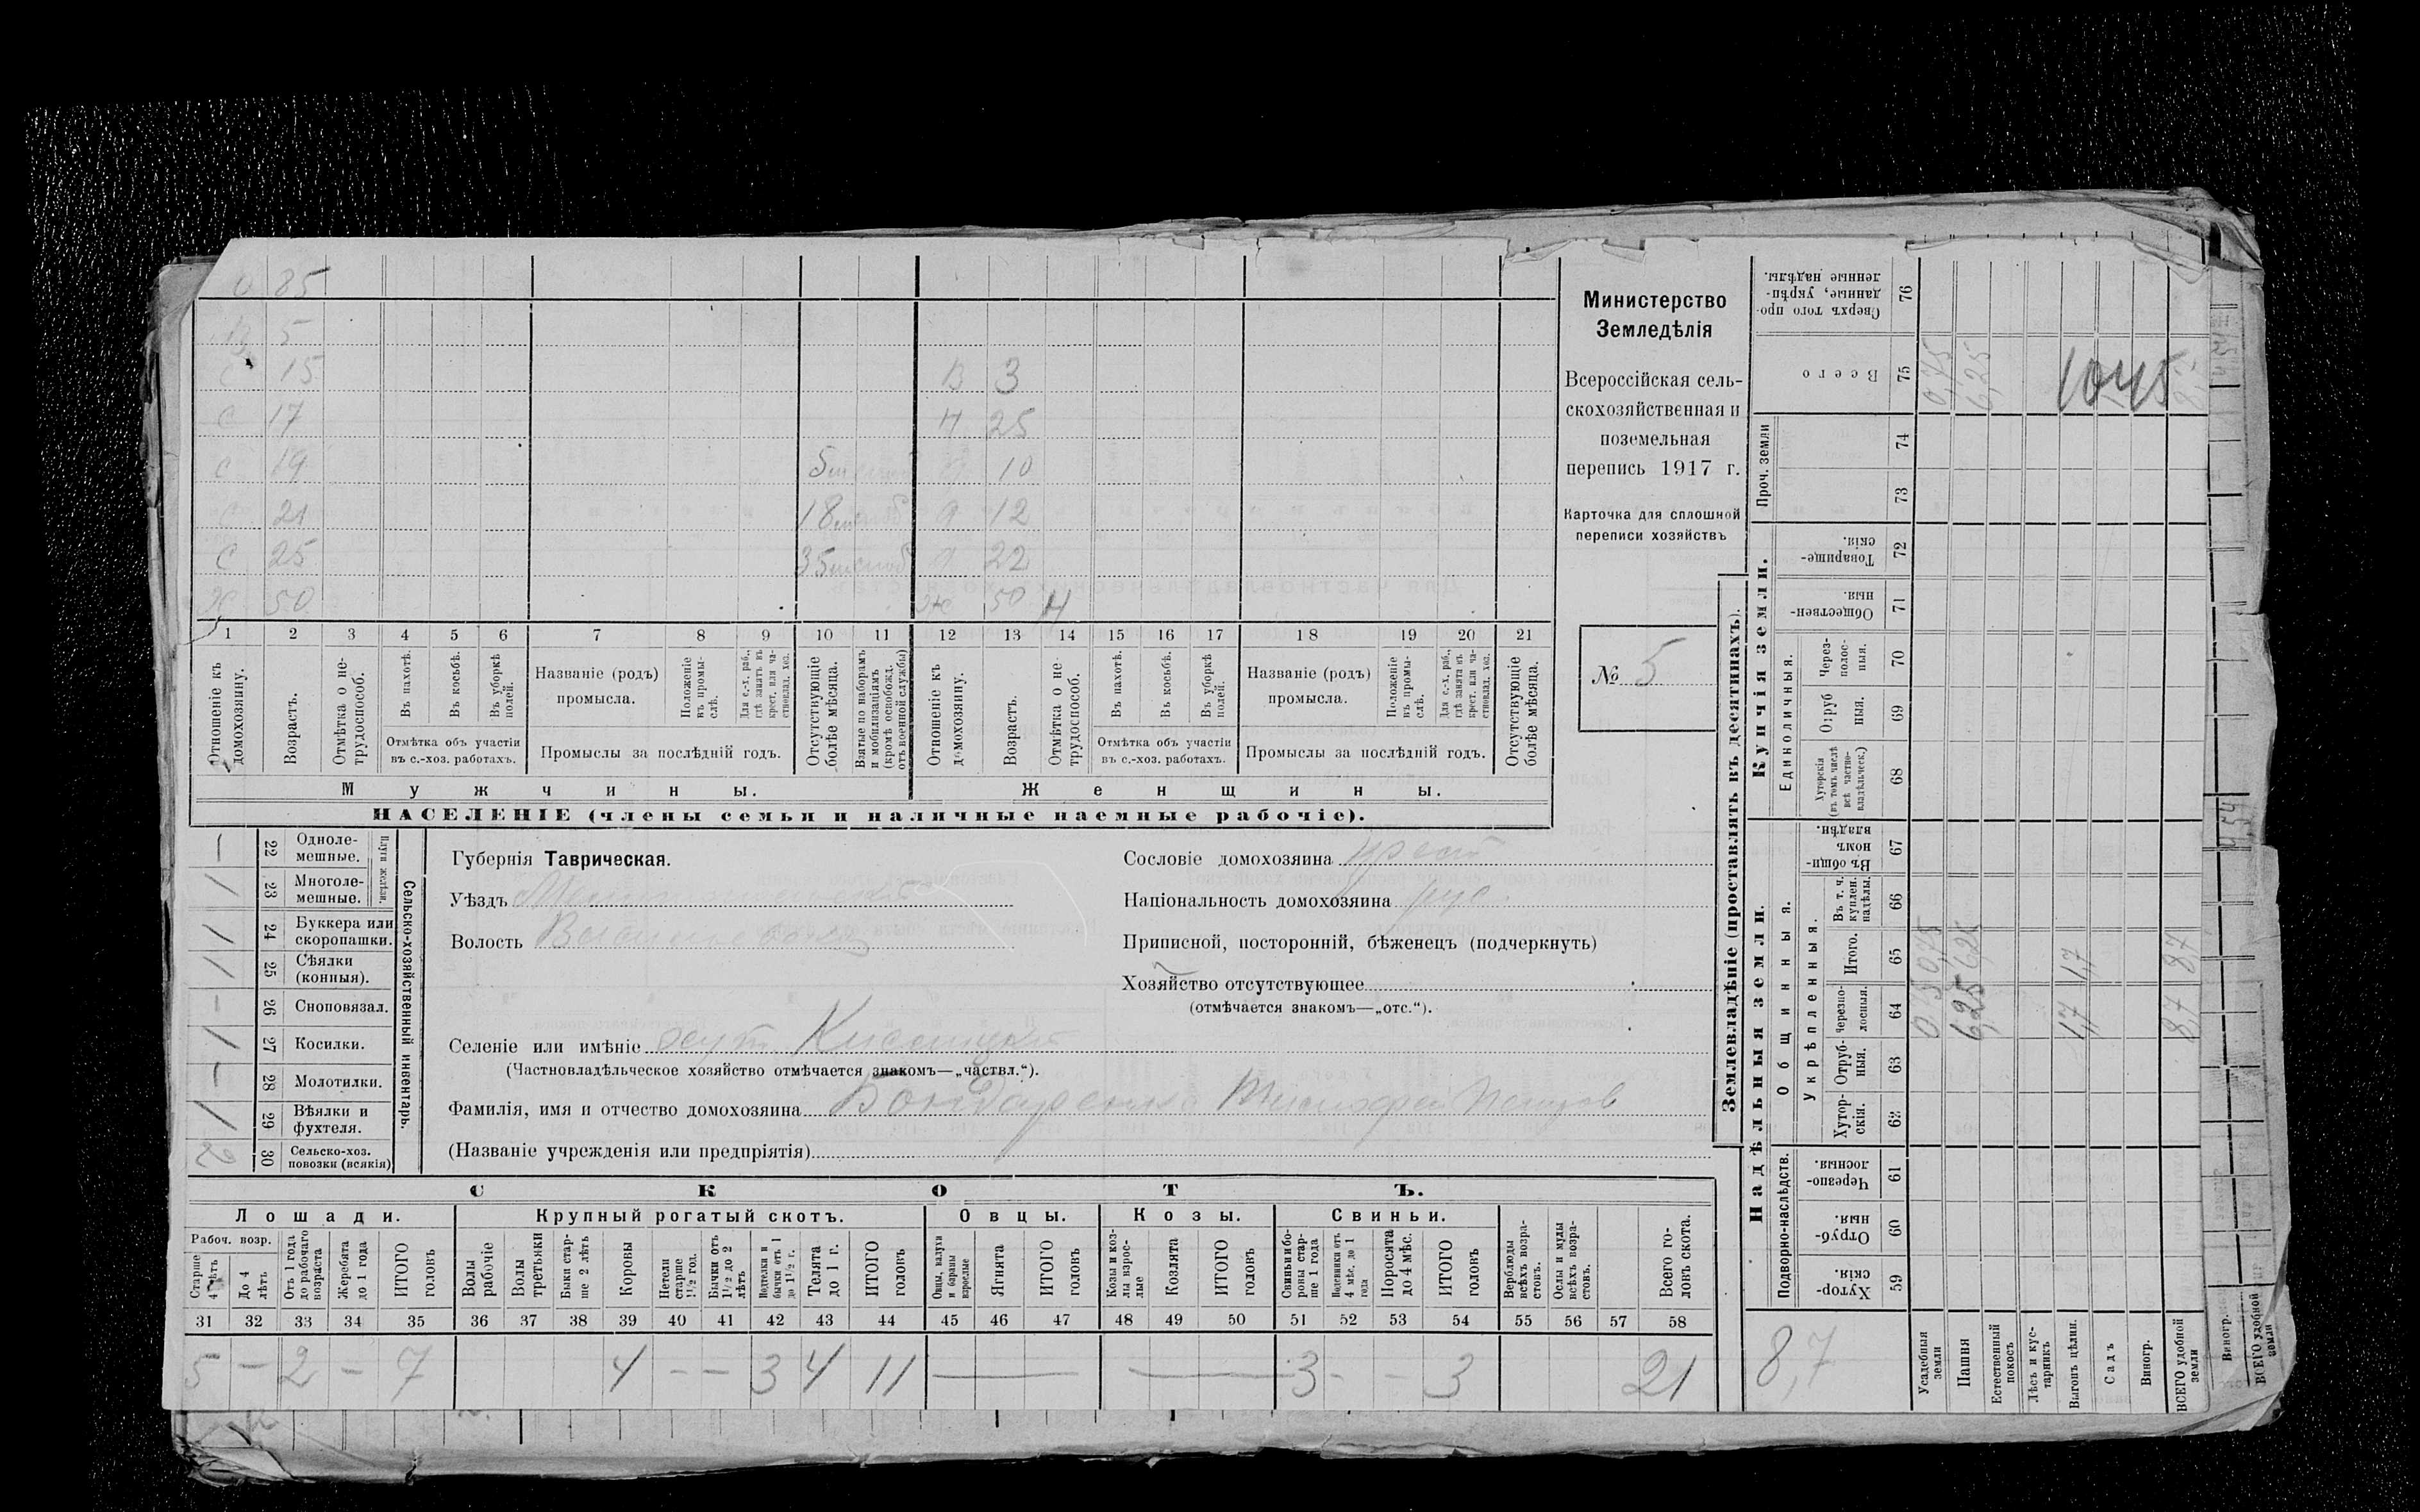 85
5
15
В 3
С 17
Н 25
С 19
5
10
21
18
12
С 25
35
22
50
50 Н
1 2 3 4 5 6 7 8 9 10 11 12 13 14 15 16 17 18 19 20 21
Отношеніе къ домохозяину.
Возрастъ.
Отмѣтка о нетрудоспособ.
Въ пахотѣ.
Въ косьбѣ.
Въ уборкѣ полей.
Отмѣтка объ участіи въ с.-хоз. работахъ.
Названіе (родъ) промысла.
Положеніе въ промыслѣ.
Для с.-х. раб., гдѣ занятъ въ крест. или частновлад. хоз.
Промыслы за послѣдній годъ.
Отсутствующіе болѣе мѣсяца.
Взятые по наборамъ и мобилизаціямъ (кромѣ освобожд. отъ военной службы)
Отношеніе къ домохозяину.
Возрастъ.
Отмѣтка о нетрудоспособ.
Въ пахотѣ.
Въ косьбѣ.
Въ уборкѣ полей.
Отмѣтка объ участіи въ с.-хоз. работахъ.
Названіе (родъ) промысла.
Положеніе въ промыслѣ.
Для с.-х. раб., гдѣ занята въ крест. или частновлад. хоз.
Промыслы за послѣдній годъ.
Отсутствующіе болѣе мѣсяца.
Мужчины.
Женщины.
НАСЕЛЕНІЕ (члены семьи и наличные наемные рабочіе).
Министерство
Земледѣлія
Всероссійская сель-
скохозяйственная и
поземельная
перепись 1917 г.
Карточка для сплошной
переписи хозяйствъ
№ 5
22 Одноле-мешные.
23 Многоле-мешные.
Плуги желѣзн.
24 Буккера или скоропашки.
25 Сѣялки (конныя).
26 Сноповязал.
27 Косилки.
28 Молотилки.
29 Вѣялки и фухтеля.
30 Сельско-хоз. повозки (всякія)
Сельско-хозяйственный инвентарь.
Губернія Таврическая.
Уѣздъ
Волость
Сословіе домохозяина крест
Національность домохозяина рус.
Приписной, посторонній, бѣженецъ (подчеркнуть)
Хозяйство отсутствующее
(отмѣчается знакомъ—„отс.“).
Селеніе или имѣніе хут.
(Частновладѣльческое хозяйство отмѣчается знакомъ—„частвл.“).
Фамилія, имя и отчество домохозяина Бондаренко Тимофей Петров
(Названіе учрежденія или предпріятія)
СКОТЪ.
Лошади.
Крупный рогатый скотъ.
Овцы.
Козы.
Свиньи.
Рабоч. возр.
Старше 4 лѣтъ
До 4 лѣтъ
Отъ 1 года до рабочаго возраста
Жеребята до 1 года
ИТОГО головъ
Волы рабочіе
Волы третьяки
Быки старше 2 лѣтъ
Коровы
Нетели старше 1½ год.
Бычки отъ 1½ до 2 лѣтъ
Нетелки и бычки отъ 1 до 1½ г.
Телята до 1 г.
ИТОГО головъ
Овцы, валухи и бараны взрослые
Ягнята
ИТОГО головъ
Козы и козлы взрослые
Козлята
ИТОГО головъ
Свиньи и боровы старше 1 года
Подсвинки отъ 4 мѣс. до 1 года
Поросята до 4 мѣс.
ИТОГО головъ
Верблюды всѣхъ возрастовъ.
Ослы и мулы всѣхъ возрастовъ.
Всего головъ скота.
31 32 33 34 35 36 37 38 39 40 41 42 43 44 45 46 47 48 49 50 51 52 53 54 55 56 57 58
5 — 2 — 7 4 — — 3 4 11 — — 3 - - 3 21
Землевладѣніе (проставлять въ десятинахъ).
Надѣльныя земли.
Купчія земли.
Проч. земли
Подворно-наслѣдств.
Общинныя.
Укрѣпленныя.
Единоличныя.
Хуторскія. 59
Отрубныя 60
Черезполосныя. 61
Хуторскія. 62
Отрубныя. 63
Черезполосныя. 64
Итого. 65
Въ т. ч. куплен. надѣлы. 66
Въ общинномъ владѣн. 67
Хуторскія (въ томъ числѣ всѣ частновладѣльческ.) 68
Отрубныя. 69
Черезполосныя. 70
Общественныя. 71
Товарищескія. 72
73
74
Всего 75
Сверхъ того проданные, укрѣпленные надѣлы. 76
0,75
6,25
1045
6,25 6,25
1,7 1,7
8,7 8,7
8,7
Усадебныя земли
Пашня
Естественный покосъ
Лѣсъ и кустарникъ
Выгонъ цѣлин.
Садъ
Виногр.
ВСЕГО удобной земли
Виногр.
ВСЕГО удобной земли